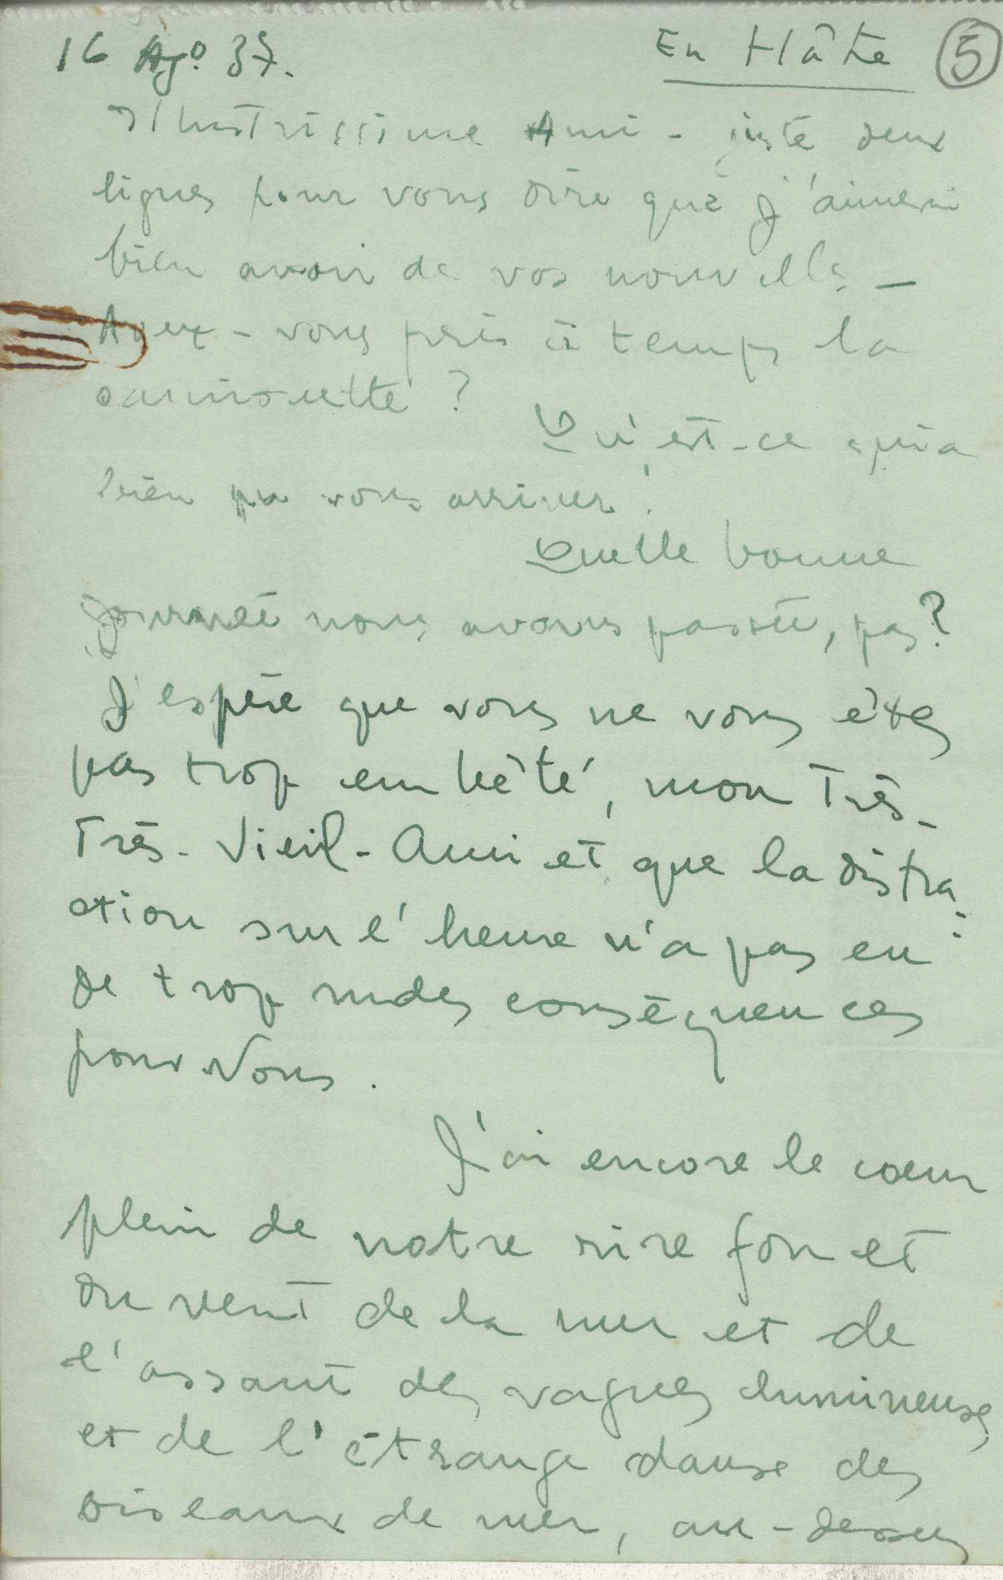 16 Ago. 37.
En Hâte
5
Illustrissime Ami - juste deux
lignes pour vous dire que j'aimerai
bien avoir de vos nouvelles -
Avez-vous pris à temps la
camionette ?
Qu'est-ce qui a
bien pu vous arriver !
Quelle bonne
journée nous avons passée, pas ?
J'espère que vous ne vous êtes
pas trop embêté, mon Très-
Très-Vieil-Ami et que la distra-
ction sur l'heure n'a pas eu
de trop rudes conséquences
pour Vous.
J'ai encore le coeur
plein de notre rire fou et
du vent de la mer et de
l'assaut des vagues lumineuses
et de l'étrange danse des
oiseaux de mer, au-dessus